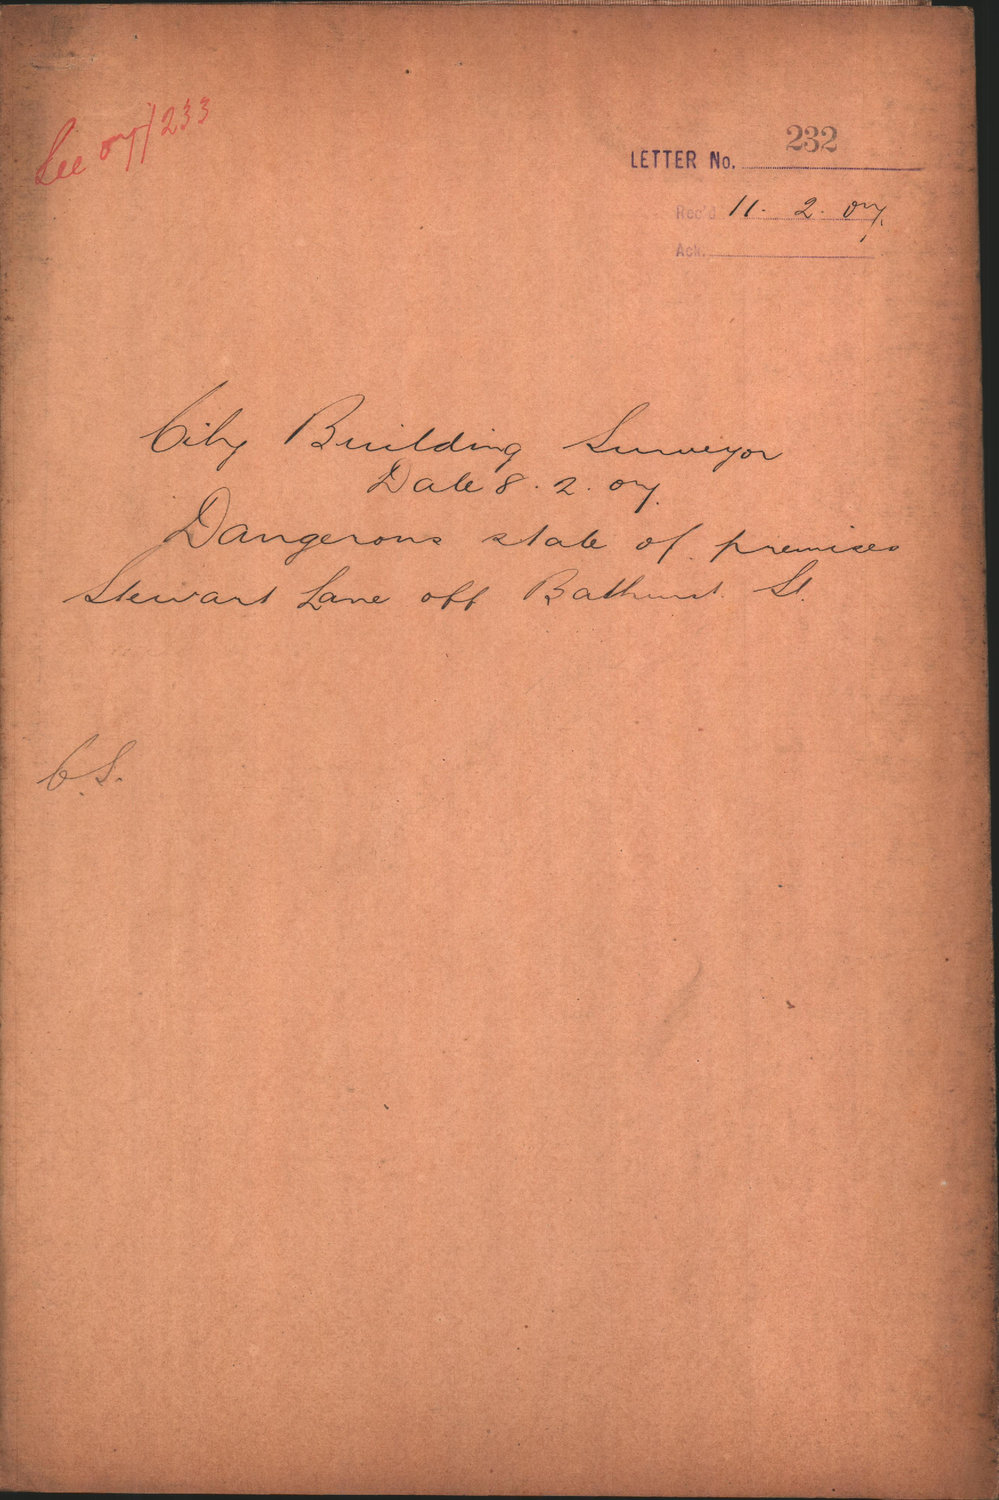 See 07/233
LETTER No. 232
Rec'd 11. 2. 07.
Ack.
City Building Surveyor
Date 8. 2. 07.
Dangerous state of premises
Stewart Lane off Bathurst St.
C.S.